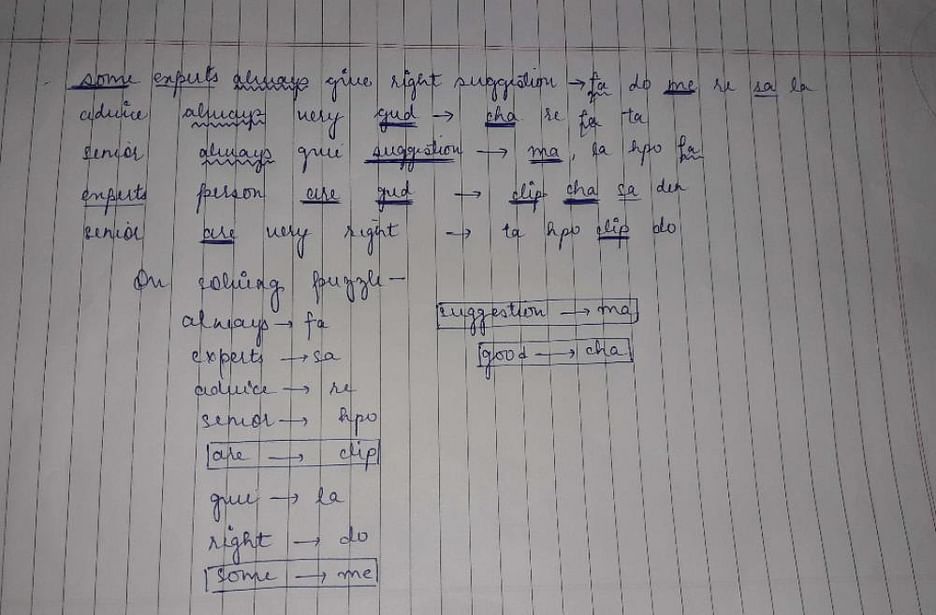 some experts always give right suggestion → fa do me re sa la
advice always very gud → cha re fa ta
senior always give suggestion → ma, la hpo fa
experts person are gud → clip cha sa den
senior are very right → ta hpo clip do
On solving puzzle—
always → fa
suggestion → ma
experts → sa
good → cha
advice → re
senior → hpo
are → clip
give → la
right → do
some → me